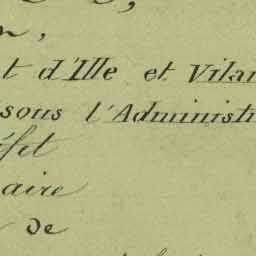 t d'Ille et Vilai
sous l'Administr
éfet
aire
de